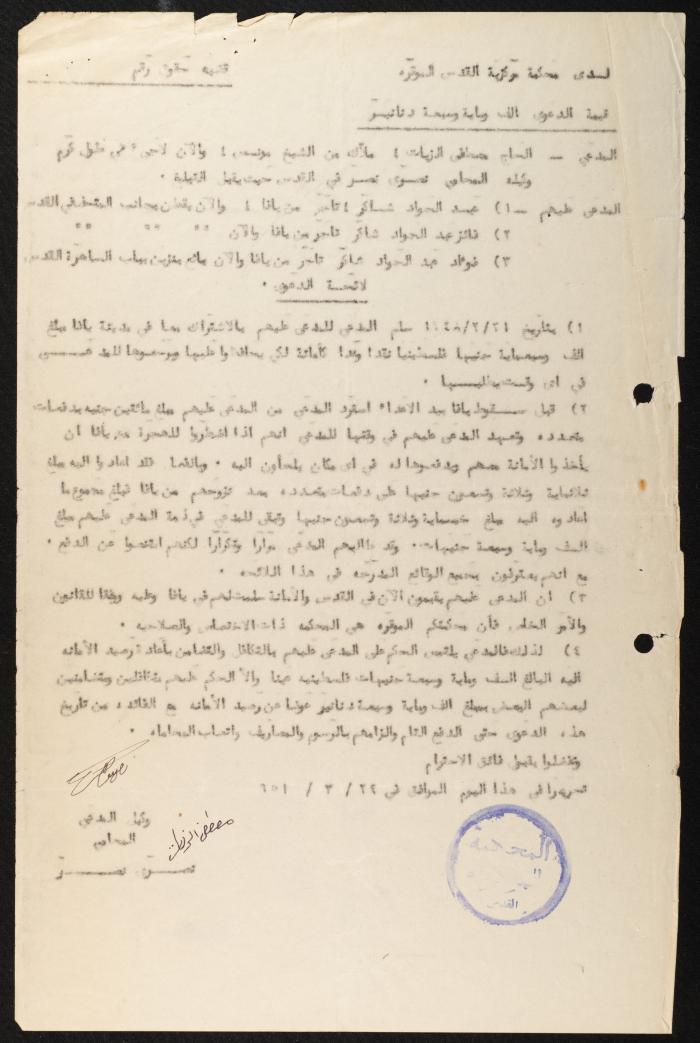 لدى محكمة مركزية القدس الموقره
قضيه حقوق رقم
قيمة الدعوى الف وماية وسبعة دنانير
المدعي — الحاج مصطفى الزيات ملاك من الشيخ مونس والآن لاجىء في طول كرم
وكيله المحامي نصري نصر في القدس حيث يقبل التبليغ ·
المدعى عليهم — ١) عبد الجواد شاكر تاجر من يافا والآن يقطن بجانب المتحف في القدس
٢) فائز عبد الجواد شاكر تاجر من يافا والآن " " " "
٣) فوءاد عبد الجواد شاكر تاجر من يافا والآن بائع بنزين بباب الساهرة القدس
لائحة الدعوى ·
١) بتاريخ ٢١/٢/ سلم المدعي للمدعى عليهم بالاشتراك معا في مدينة يافا مبلغ
الف وسبعماية جنيها فلسطينيا نقدا وعدا كأمانة لكي يحافظوا عليها ويرجعوها للمدعي
في اى وقت يطلبها ·
٢) قبل سقوط يافا بيد الاعداء استرد المدعى من المدعى عليهم مبلغ مائتين جنيه بدفعات
متعدده وتعهد المدعى عليهم في وقتها للمدعي انهم اذا اضطروا للهجرة من يافا ان
يأخذوا الأمانة معهم ويدفعوها له في اى مكان يلجأون اليه · وبالفعل فقد اعادوا اليه مبلغ
ثلاثماية وثلاثة وتسعون جنيها على دفعات متعدده بعد نزوحهم من يافا فبلغ مجموع ما
اعادوه اليه مبلغ خمسماية وثلاثة وتسعون جنيها وتبقى للمدعي في ذمة المدعى عليهم مبلغ
الف وماية وسبعة جنيهات · وقد طالبهم المدعى مرارا وتكرارا لكنهم امتنعوا عن الدفع ·
مع انهم يعترفون بجميع الوقائع المدرجه في هذا اللائحه ·
٣) ان المدعى عليهم يقيمون الآن في القدس والأمانة سلمت لهم في يافا وعليه ووفقا للقانون
والأمر الخاص فأن محكمتكم الموقره هي المحكمه ذات الاختصاص والصلاحيه ·
٤) لذلك فالمدعي يلتمس الحكم على المدعى عليهم بالتكافل والتضامن بأعادة رصيد الأمانه
اليه البالغ الف وماية وسبعة جنيهات فلسطينيه عينا والأ الحكم عليهم متكافلين ومتضامنين
لبعضهم البعض بمبلغ الف وماية وسبعة دنانير عوضا عن رصيد الأمانه مع الفائده من تاريخ
هذه الدعوى حتى الدفع التام والزامهم بالرسوم والمصاريف واتعاب المحاماه ·
وتفضلوا بقبول فائق الاحترام
تحريرا في هذا اليوم الموافق في ٢٤ / ٣ /
وكيل المدعي
المحامي
نصري نصر
مصطفى الزيات
المحكمة
القدس